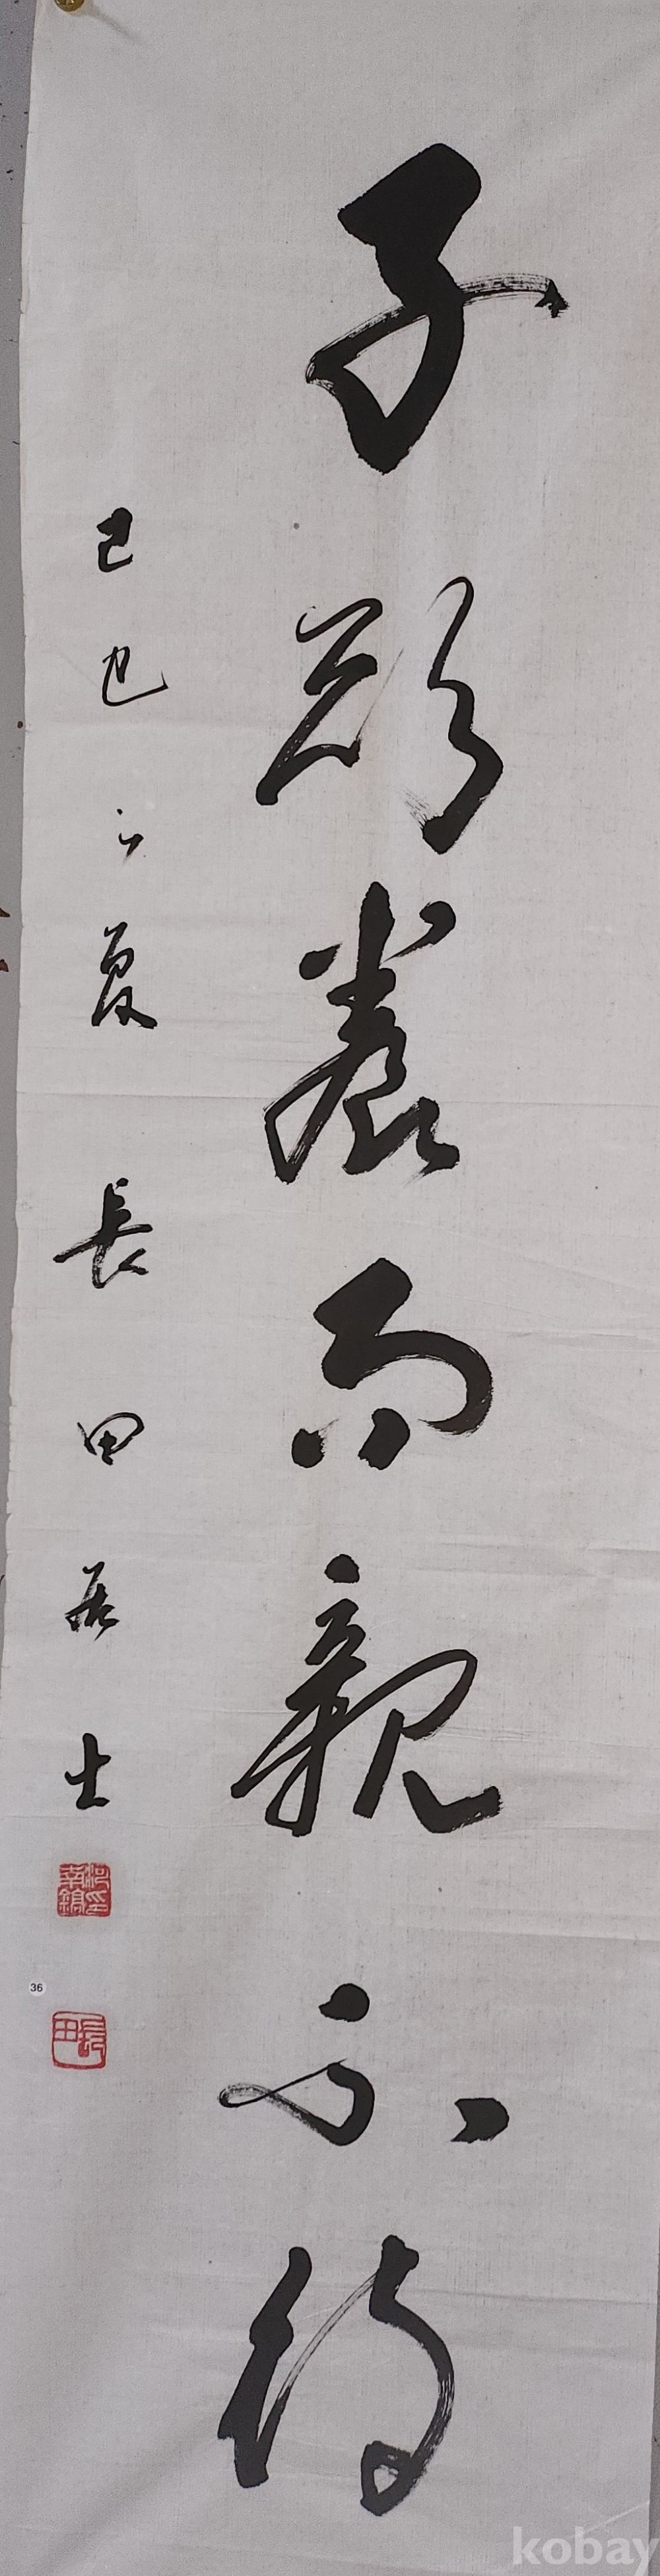 子欲養而親不待
己巳之夏 長田居士
36
長田
kobay